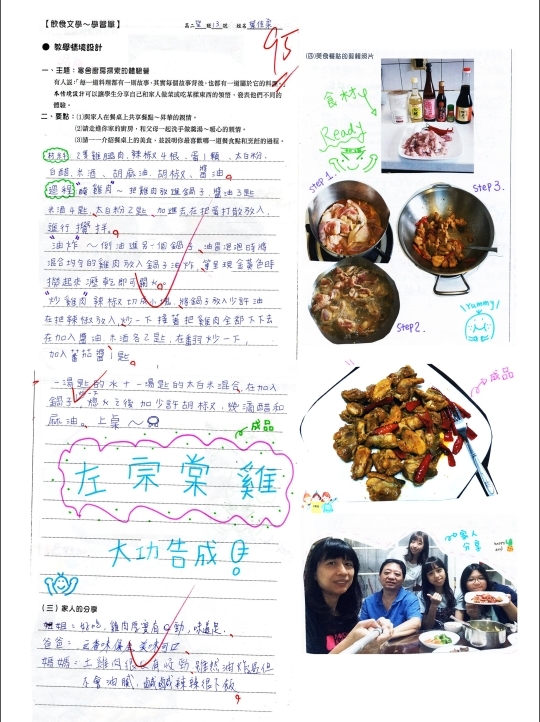 【飲食文學～學習單】
95
● 教學情境設計
一、主題：零舍廚房探索的體驗營
有人說：「每一道料理都有一則故事，其實每個故事背後，也都有一道屬於它的料理。」
本情境設計可以讓學生分享自己和家人做菜或吃某樣東西的領悟，發表他們不同的
體驗。
二、要點：(1)與家人在餐桌上共享餐點～昇華的親情。
(2)請走進你家的廚房，和父母一起洗手做羹湯～暖心的親情。
(3)請一一介紹餐桌上的美食，並說明你最喜歡哪一道餐食點和烹飪的過程。
材料 2隻雞腿肉、辣椒4根、蛋1顆、太白粉、
白醋、米酒、胡麻油、胡椒、醬油。
過程 "醃雞肉"～把雞肉放進鍋子，醬油3匙
米酒4匙、太白粉2匙、加進去在把蛋打散放入，
進行攪拌。
"油炸"～倒油進另一個鍋子，油冒泡泡時將
混合均勻的雞肉放入鍋子油炸，等呈現金黃色時
撈起來瀝乾即可關火。
"炒雞肉"辣椒切成小塊，將鍋子放入少許油
在把辣椒放入，炒一下接著把雞肉全部下下去
在加入醬油、米酒各2匙，在翻炒一下，
加入蕃茄醬1匙。
一湯匙的水＋一湯匙的太白米混合，在加入
鍋子，熄火之後加少許胡椒，幾滴醋和
麻油。上桌～
成品
左宗棠雞
大功告成！
(三) 家人的分享
姐姐：好吃，雞肉厚實有Q勁，味道足。
爸爸：五香味俱全 美味可口
媽媽：土雞肉很有咬勁，雖然油炸過但
不會油膩，鹹鹹辣辣很下飯。
(四)美食餐點的製輯照片
食材
Ready
step 1.
Step 3.
Step 2.
Yummy
成品
家人
分享